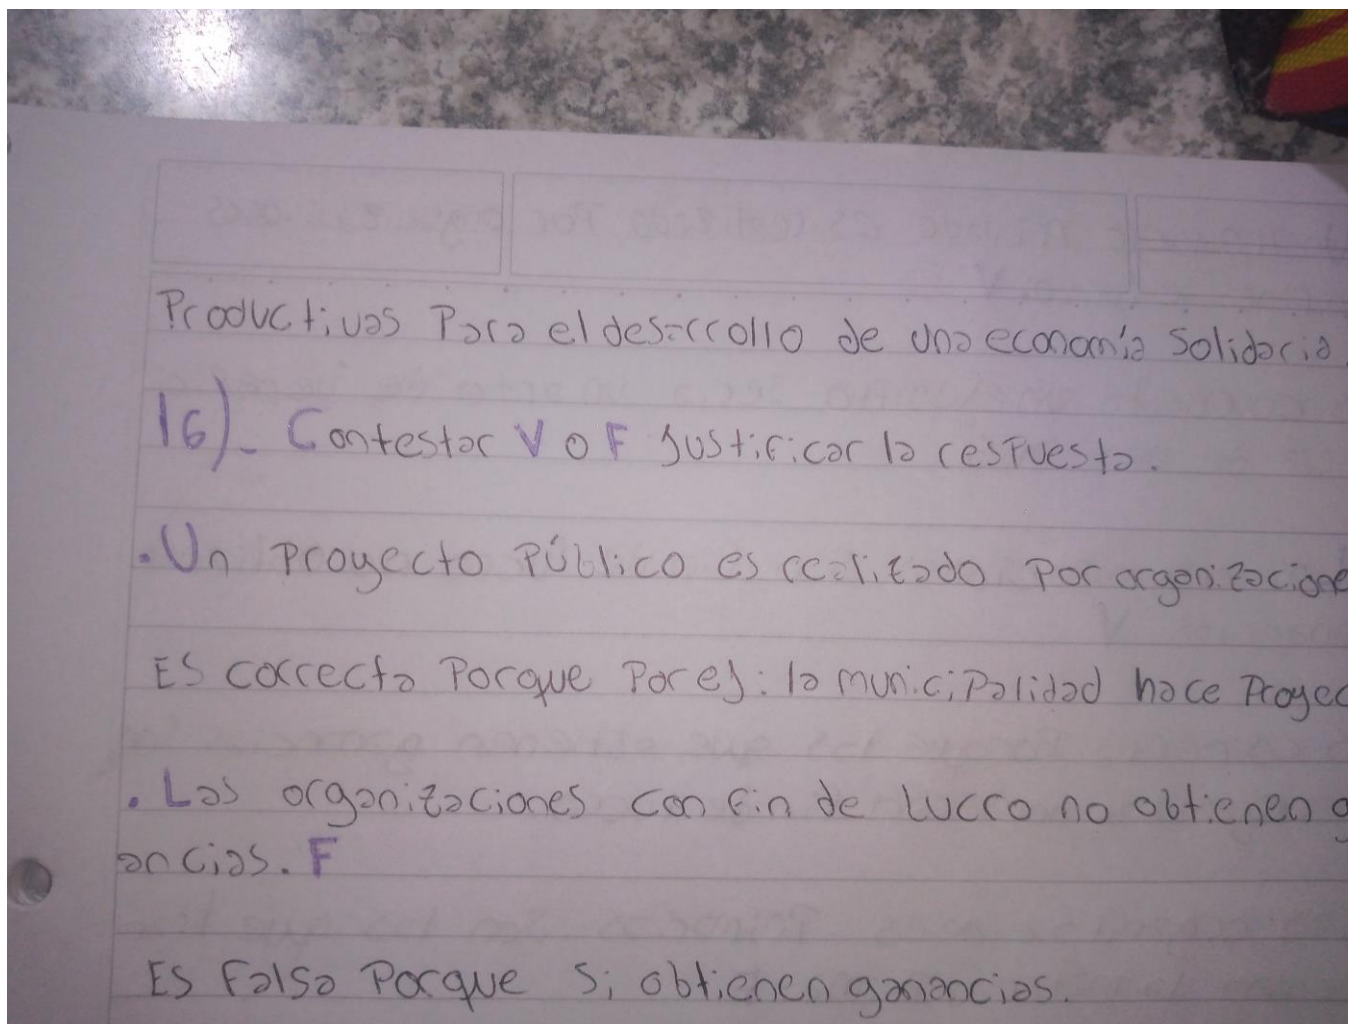 Productivas Para el desarrollo de una economía Solidaria.
16)- Contestar V o F Justificar la respuesta.
.Un Proyecto Público es realizado Por organizacione
ES correcta Porque Por ej: la municipalidad hace Proyec
. Las organizaciones con fin de lucro no obtienen g
ancias. F
ES Falsa Porque Si obtienen ganancias.